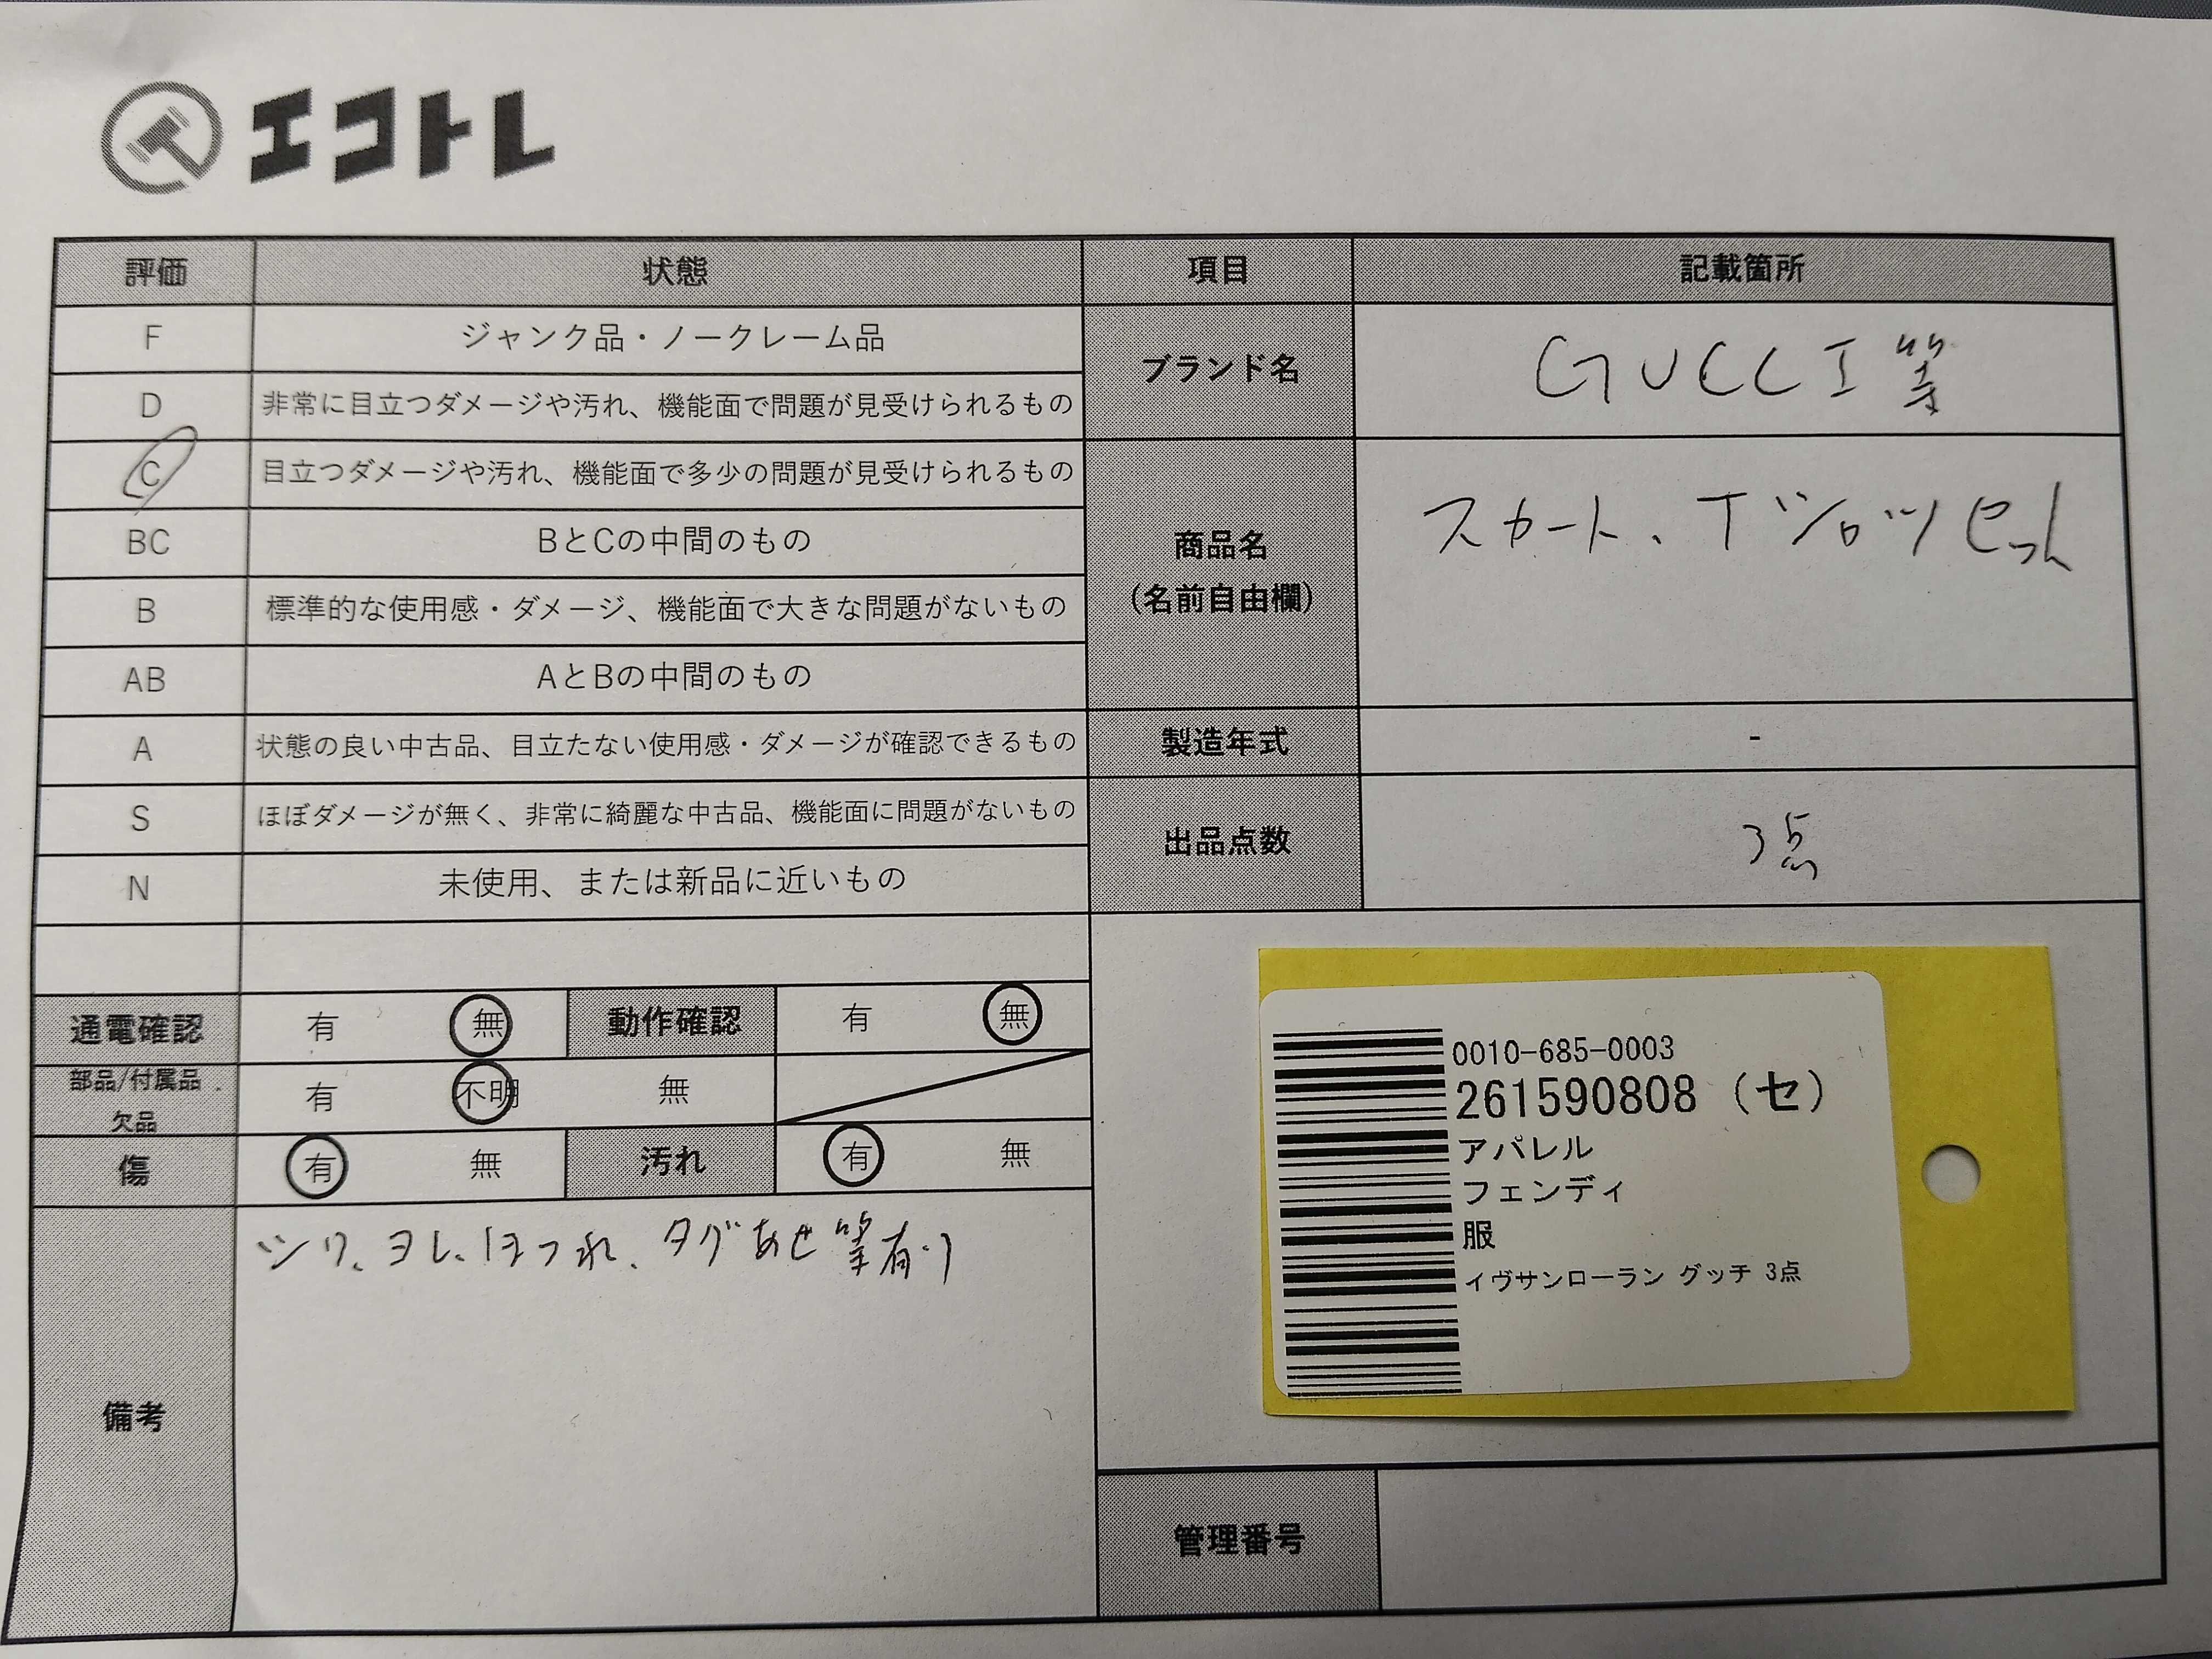 エコトレ
評価 状態 項目 記載箇所
F ジャンク品・ノークレーム品
D 非常に目立つダメージや汚れ、機能面で問題が見受けられるもの
C 目立つダメージや汚れ、機能面で多少の問題が見受けられるもの
BC BとCの中間のもの
B 標準的な使用感・ダメージ、機能面で大きな問題がないもの
AB AとBの中間のもの
A 状態の良い中古品、目立たない使用感・ダメージが確認できるもの
S ほぼダメージが無く、非常に綺麗な中古品、機能面に問題がないもの
N 未使用、または新品に近いもの
ブランド名 GUCCI等
商品名
(名前自由欄)
スカート、Tシャツセット
製造年式 -
出品点数 3点
通電確認 有 無 動作確認 有 無
部品/付属品
欠品
有 不明 無
傷 有 無 汚れ 有 無
備考
シワ、ヨレ、ほつれ、タグあせ等有り
0010-685-0003
261590808 (セ)
アパレル
フェンディ
服
イヴサンローラン グッチ 3点
管理番号